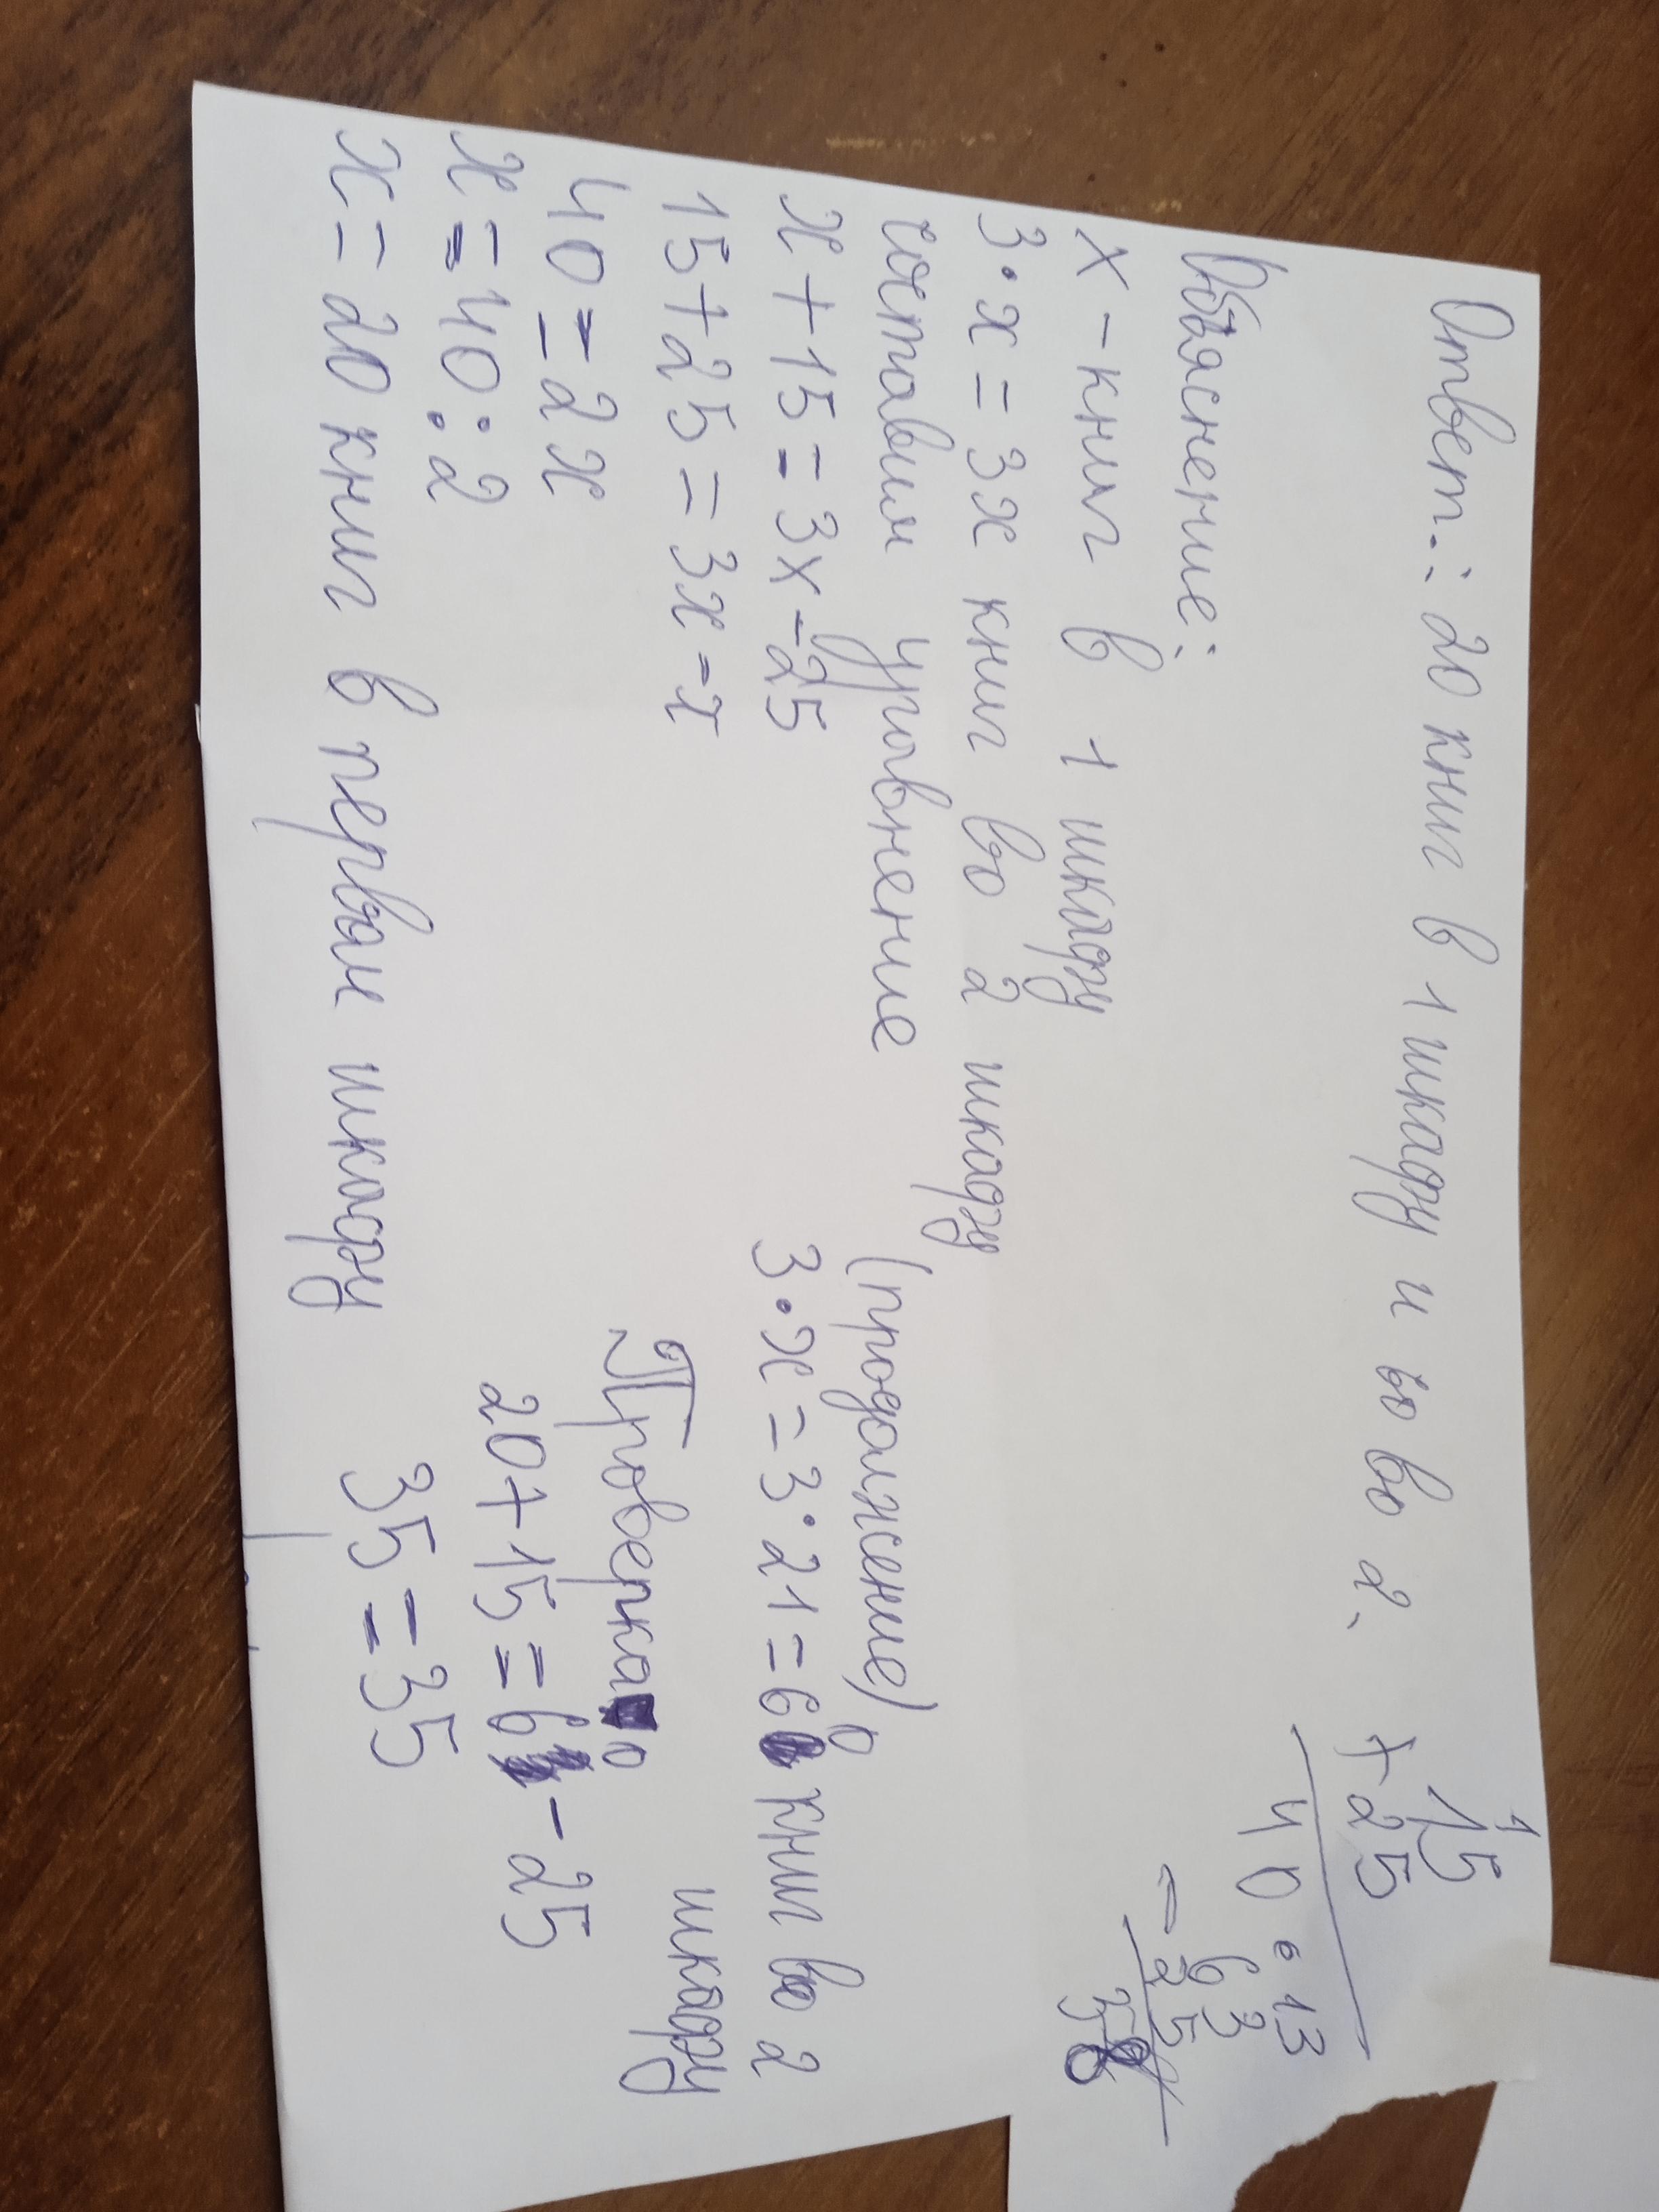 Ответ: 20 книг в 1 шкафу и 60 во 2.
Объяснение:
х - книг в 1 шкафу
3·х = 3х книг во 2 шкафу
составим уравнение
х + 15 = 3х - 25
15 + 25 = 3х - х
40 = 2х
х = 40 : 2
х = 20 книг в первом шкафу
(продолжение)
3·х = 3·21 = 60 книг во 2
шкафу
Проверка
20 + 15 = 60 - 25
35 = 35
1
15
+ 25
40
13
63
- 25